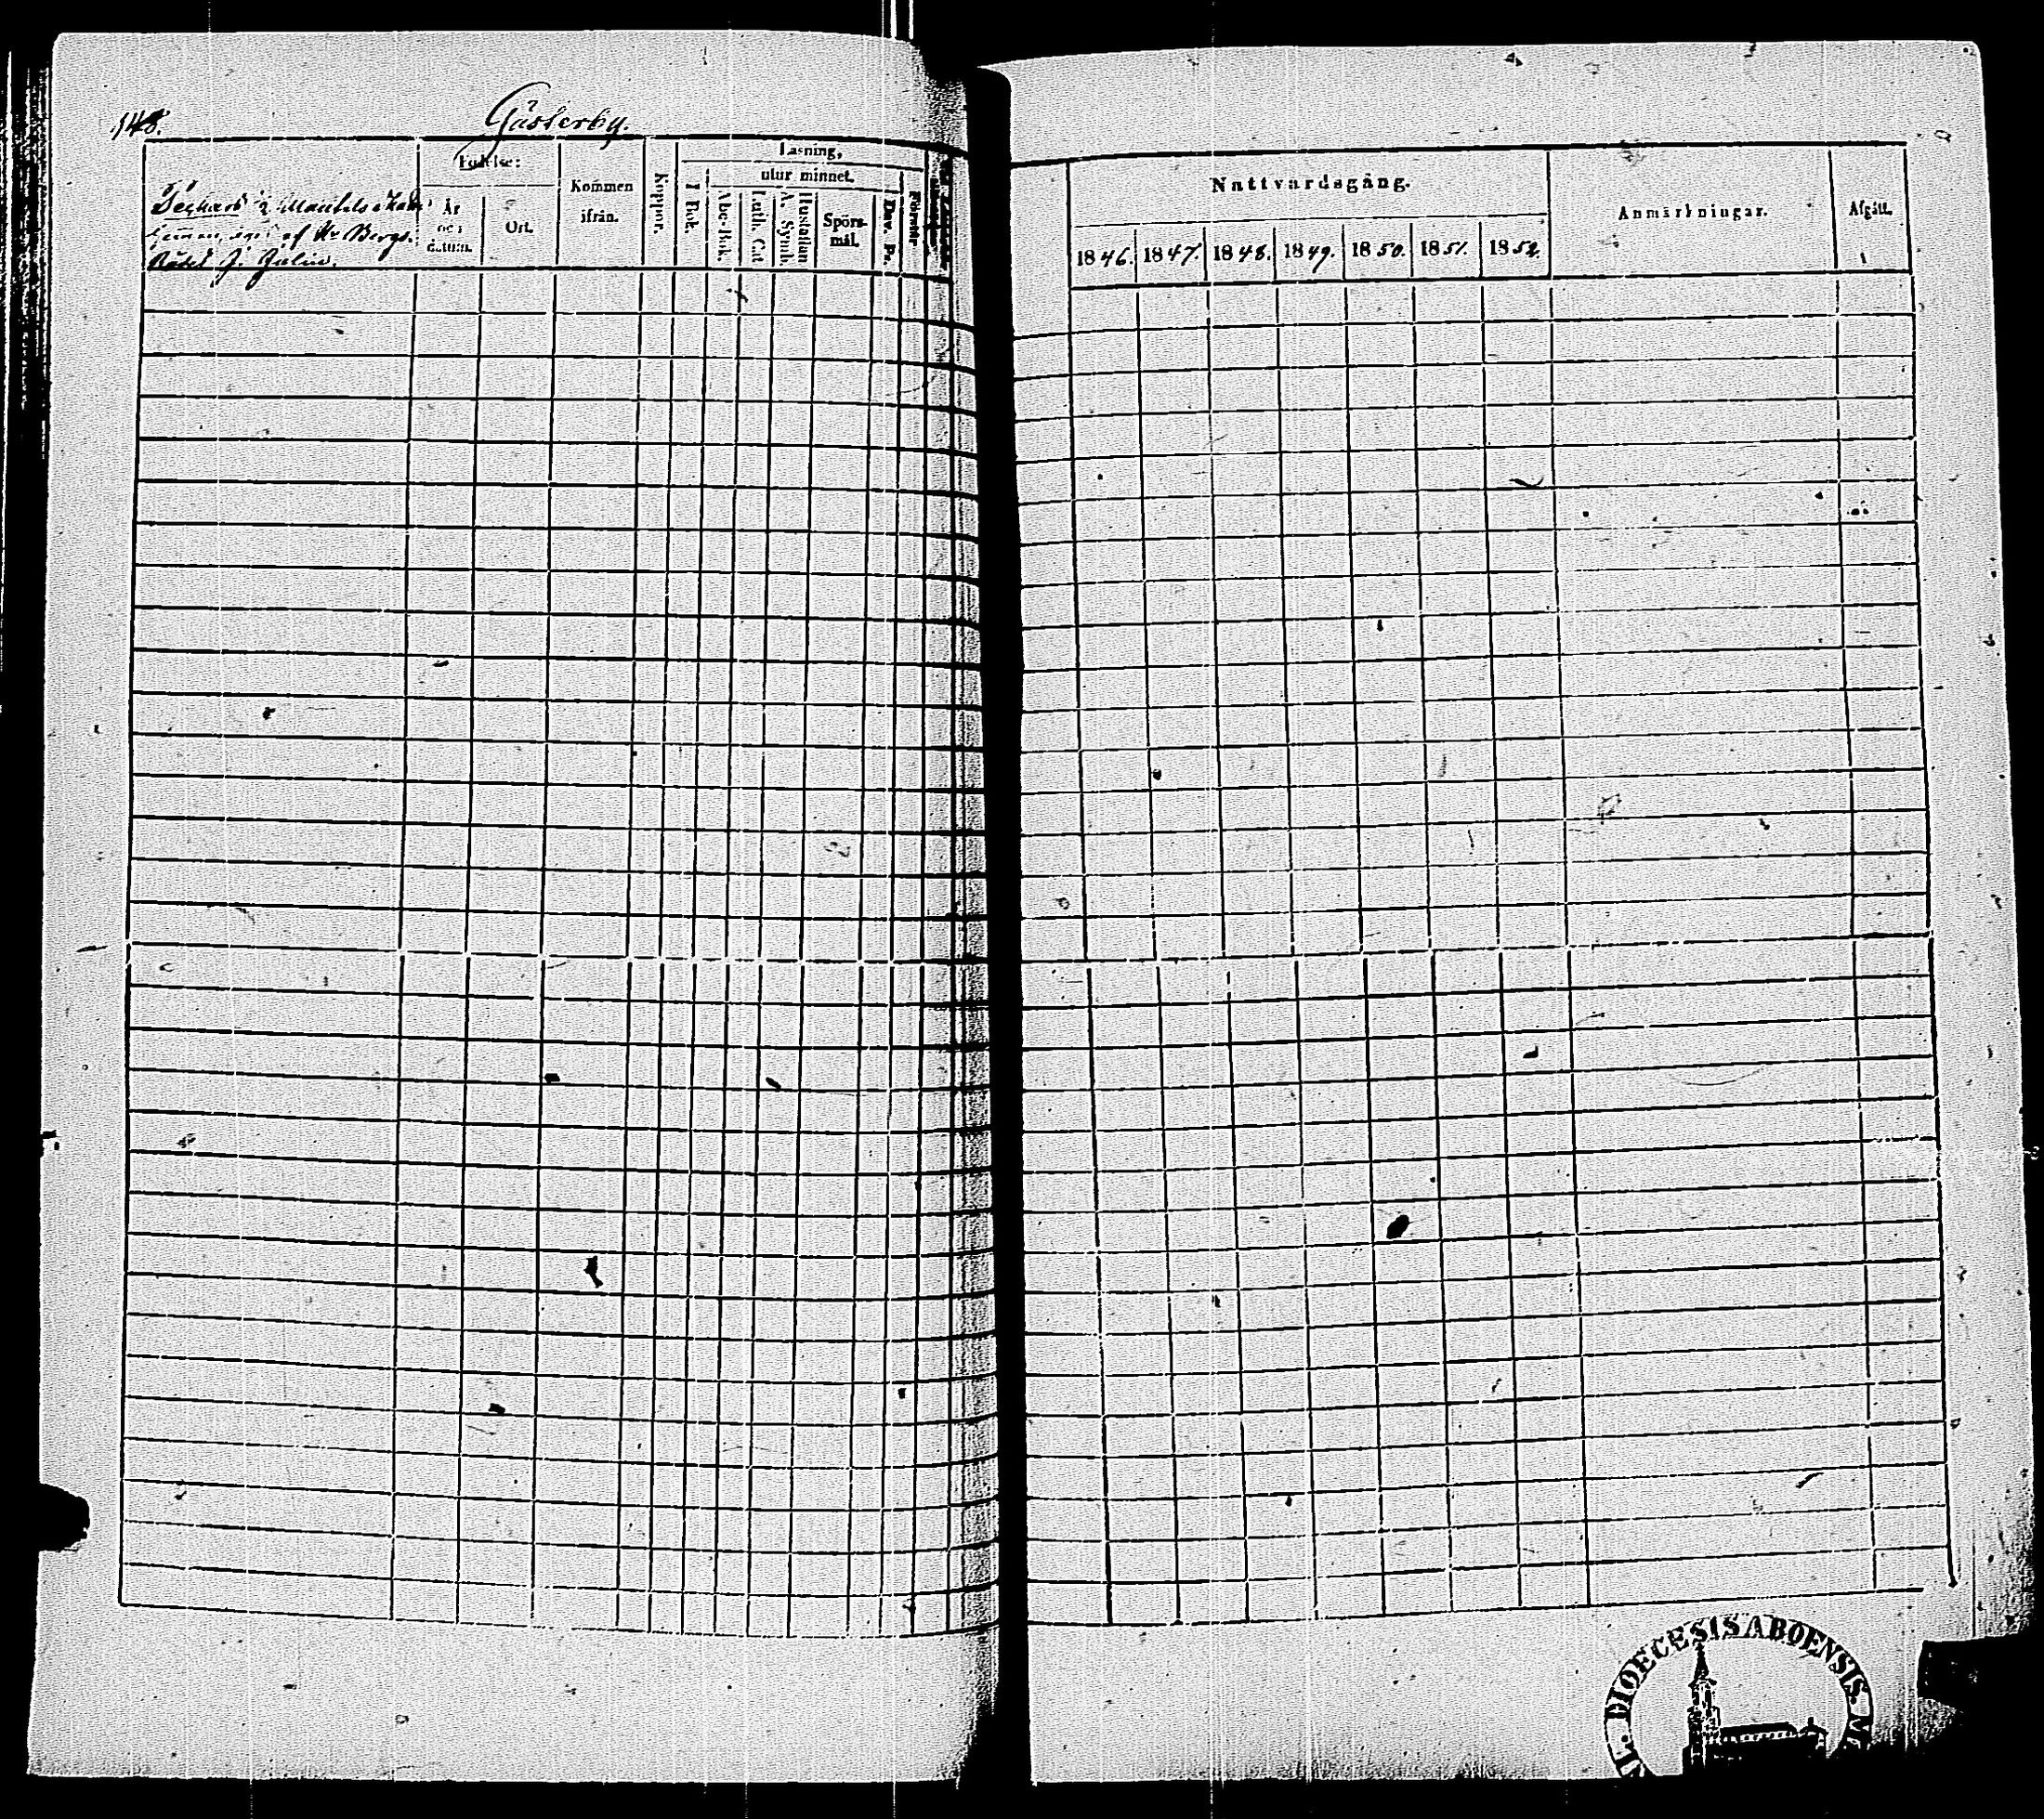 148.
Gästerby.
hemman, eges af Hr Bergs-
Rådet J. Julin.
Födelse:
År och datum.
Ort.
Kommen ifrån.
Koppor.
Läsning,
I Bok.
utur minnet.
Abc-Bok.
Luth. Cat.
Hustaflan A. Symb.
Spörs-mål.
Dav. Ps.
Förstår
Nattvardsgång.
1846. 1847. 1848. 1849. 1850. 1851. 1852.
Anmärkningar.
Afgått.
DIOECESIS ABOENSIS.